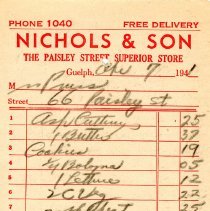 PHONE 1040 FREE DELIVERY
NICHOLS & SON
THE PAISLEY STREET SUPERIOR STORE
Guelph, Apr 7 1941
M
Street 66 Paisley St
1 25
1 Butter 37
3 Cookies 19
4 Bologna 05
1 Lettuce 12
6 22
7 25